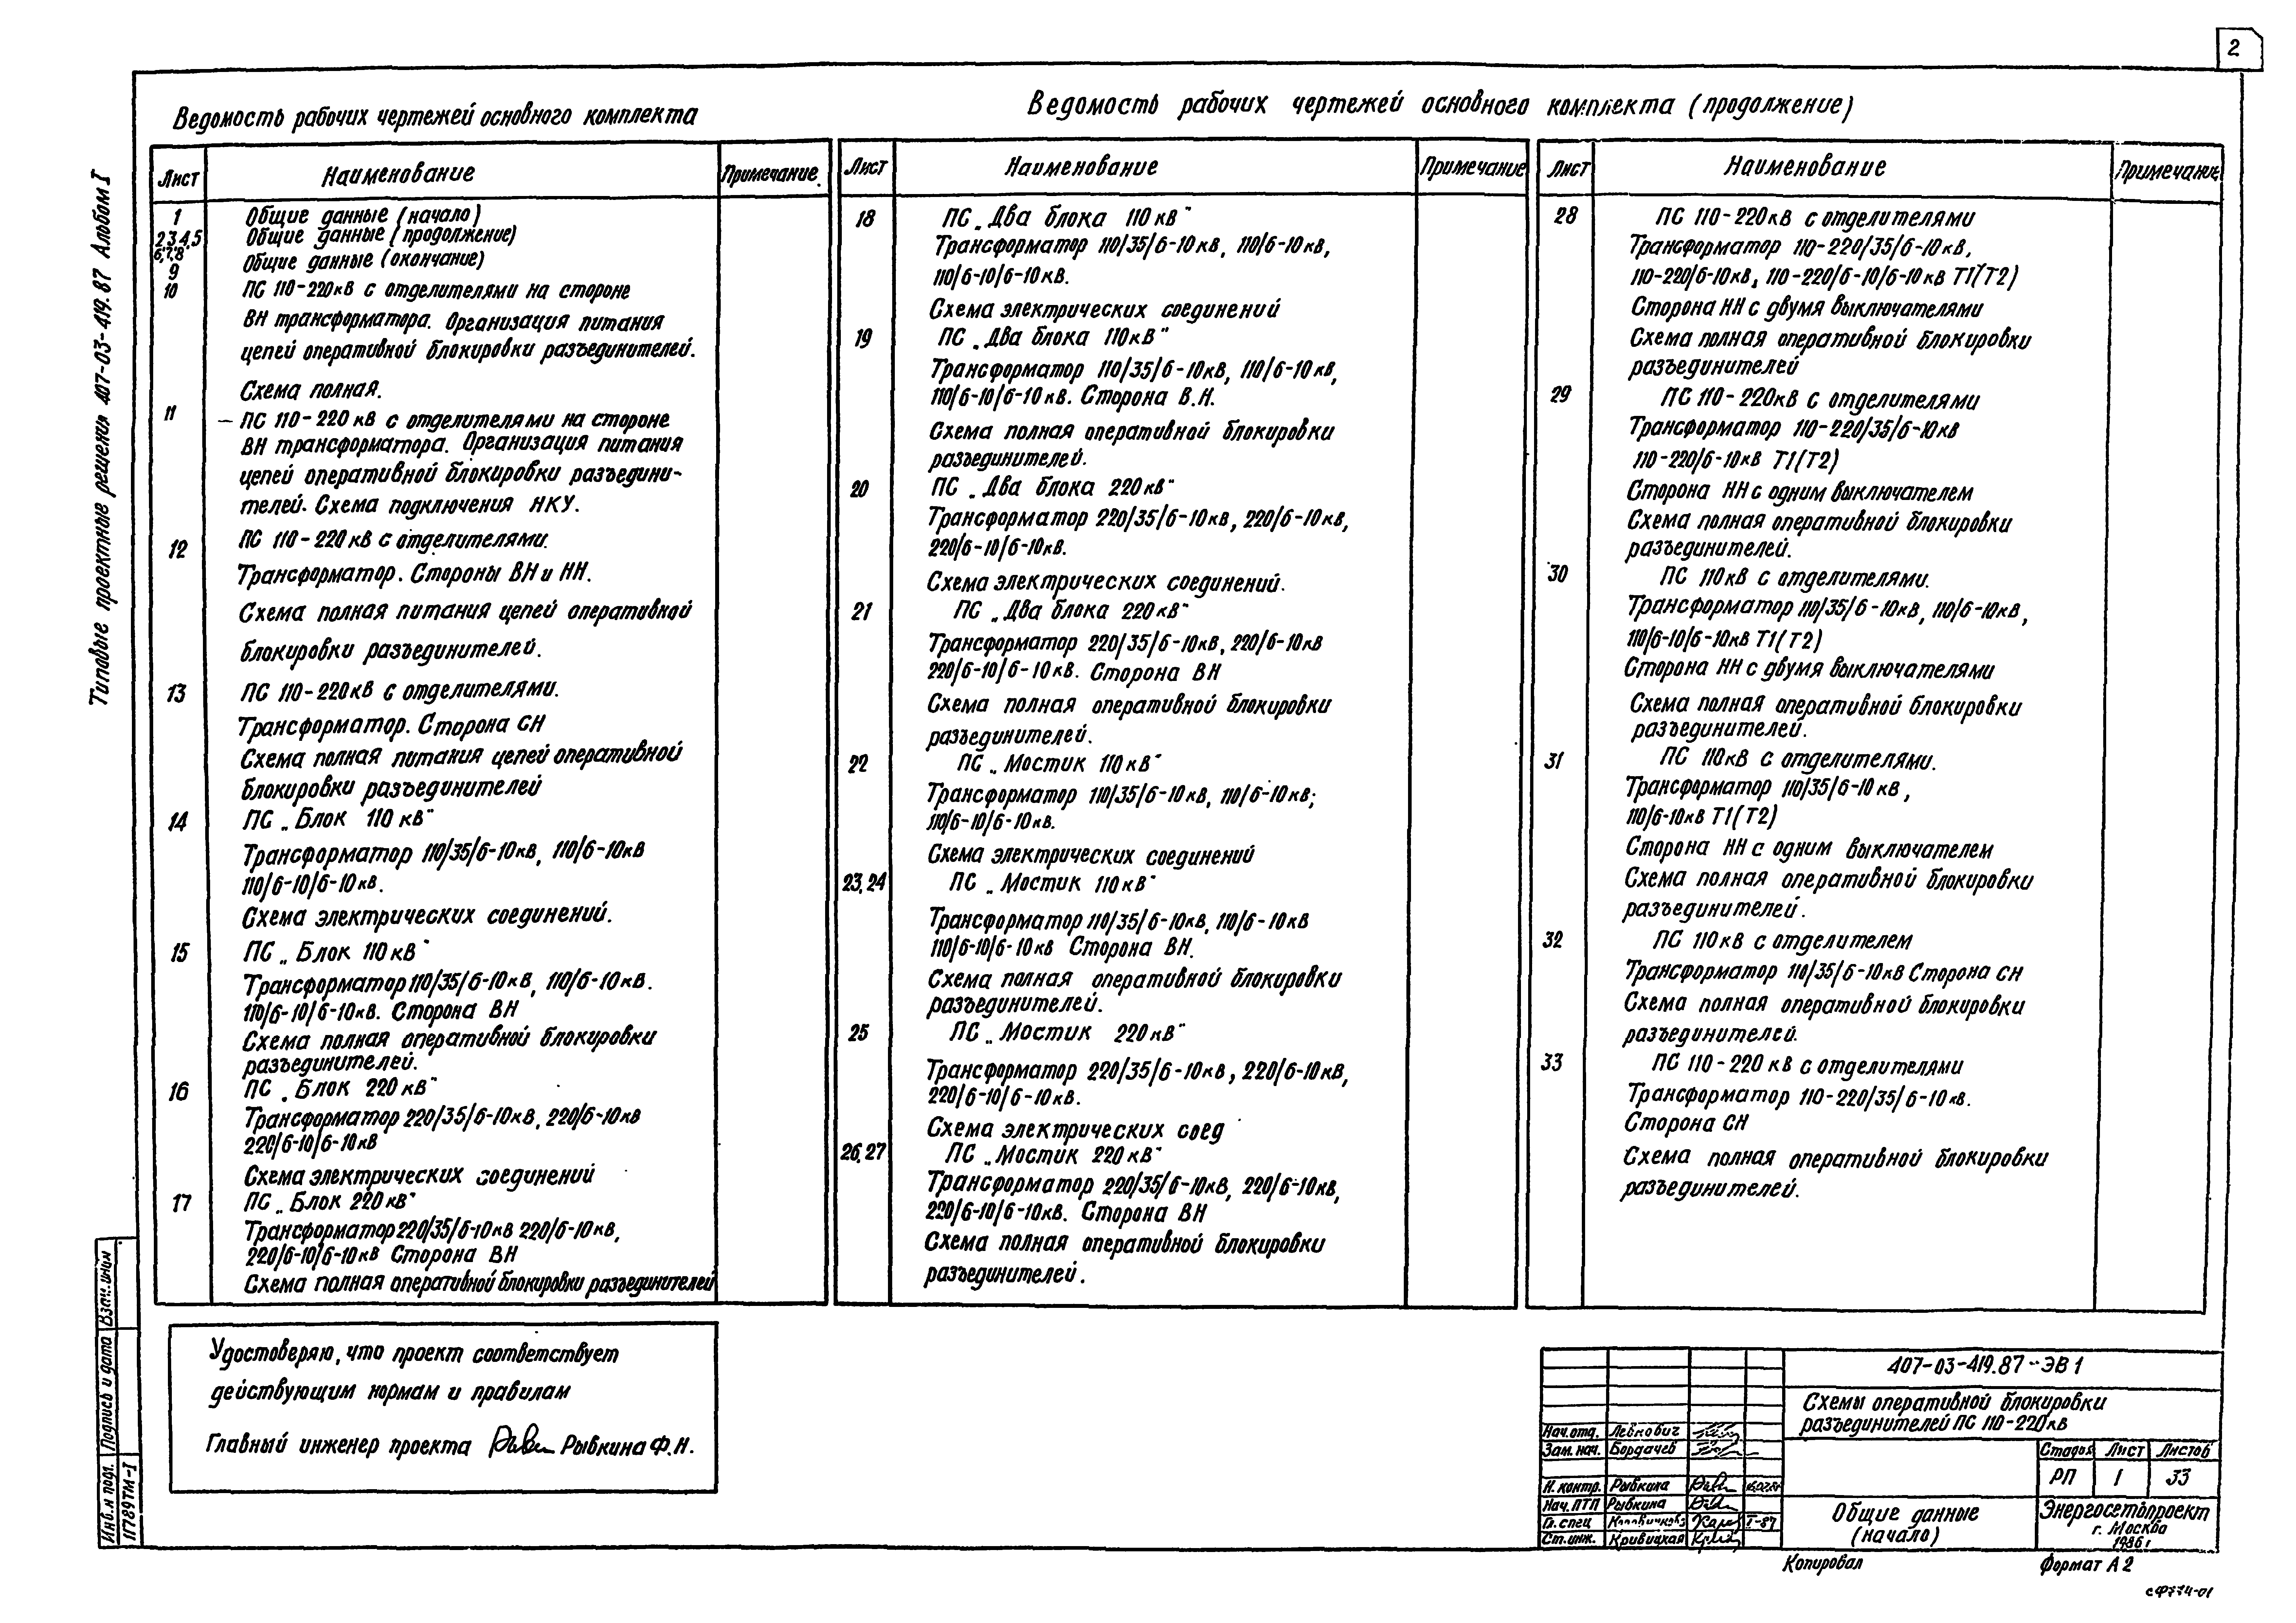 2
Типовые проектные решения 407-03-419.87 Альбом I
Ведомость рабочих чертежей основного комплекта
Лист Наименование Примечание
1 Общие данные (начало)
2,3,4,5 Общие данные (продолжение)
6,7,8
9 Общие данные (окончание)
10 ПС 110-220кВ с отделителями на стороне
ВН трансформатора. Организация питания
цепей оперативной блокировки разъединителей.
Схема полная.
11 – ПС 110-220 кВ с отделителями на стороне
ВН трансформатора. Организация питания
цепей оперативной блокировки разъедини-
телей. Схема подключения НКУ.
12 ПС 110-220 кВ с отделителями.
Трансформатор. Стороны ВН и НН.
Схема полная питания цепей оперативной
блокировки разъединителей.
13 ПС 110-220кВ с отделителями.
Трансформатор. Сторона СН
Схема полная питания цепей оперативной
блокировки разъединителей
14 ПС „Блок 110 кВ"
Трансформатор 110/35/6-10кВ, 110/6-10кВ
110/6-10/6-10 кВ.
Схема электрических соединений.
15 ПС „Блок 110 кВ"
Трансформатор 110/35/6-10кВ, 110/6-10кВ.
110/6-10/6-10кВ. Сторона ВН
Схема полная оперативной блокировки
разъединителей.
16 ПС „Блок 220 кВ"
Трансформатор 220/35/6-10кВ, 220/6-10кВ
220/6-10/6-10кВ
Схема электрических соединений
17 ПС „Блок 220 кВ"
Трансформатор 220/35/6-10кВ 220/6-10кВ,
220/6-10/6-10кВ Сторона ВН
Схема полная оперативной блокировки разъединителей
Ведомость рабочих чертежей основного комплекта (продолжение)
Лист Наименование Примечание
18 ПС „Два блока 110 кВ"
Трансформатор 110/35/6-10кВ, 110/6-10кВ,
110/6-10/6-10кВ.
Схема электрических соединений
19 ПС „Два блока 110кВ"
Трансформатор 110/35/6-10кВ, 110/6-10кВ,
110/6-10/6-10кВ. Сторона В.Н.
Схема полная оперативной блокировки
разъединителей.
20 ПС „Два блока 220кВ"
Трансформатор 220/35/6-10кВ, 220/6-10кВ,
220/6-10/6-10кВ.
Схема электрических соединений.
21 ПС „Два блока 220кВ"
Трансформатор 220/35/6-10кВ, 220/6-10кВ
220/6-10/6-10кВ. Сторона ВН
Схема полная оперативной блокировки
разъединителей.
22 ПС „Мостик 110кВ"
Трансформатор 110/35/6-10кВ, 110/6-10кВ;
110/6-10/6-10кВ.
Схема электрических соединений
23,24 ПС „Мостик 110кВ"
Трансформатор 110/35/6-10кВ, 110/6-10кВ
110/6-10/6-10кВ Сторона ВН.
Схема полная оперативной блокировки
разъединителей.
25 ПС „Мостик 220кВ"
Трансформатор 220/35/6-10кВ, 220/6-10кВ,
220/6-10/6-10кВ.
Схема электрических соед
26,27 ПС „Мостик 220кВ"
Трансформатор 220/35/6-10кВ, 220/6-10кВ,
220/6-10/6-10кВ. Сторона ВН
Схема полная оперативной блокировки
разъединителей.
Лист Наименование Примечание
28 ПС 110-220кВ с отделителями
Трансформатор 110-220/35/6-10кВ,
110-220/6-10кВ, 110-220/6-10/6-10кВ Т1(Т2)
Сторона НН с двумя выключателями
Схема полная оперативной блокировки
разъединителей
29 ПС 110-220кВ с отделителями
Трансформатор 110-220/35/6-10кВ
110-220/6-10кВ Т1(Т2)
Сторона НН с одним выключателем
Схема полная оперативной блокировки
разъединителей.
30 ПС 110кВ с отделителями.
Трансформатор 110/35/6-10кВ, 110/6-10кВ,
110/6-10/6-10кВ Т1(Т2)
Сторона НН с двумя выключателями
Схема полная оперативной блокировки
разъединителей.
31 ПС 110кВ с отделителями.
Трансформатор 110/35/6-10кВ,
110/6-10кВ Т1(Т2)
Сторона НН с одним выключателем
Схема полная оперативной блокировки
разъединителей.
32 ПС 110кВ с отделителем
Трансформатор 110/35/6-10кВ Сторона СН
Схема полная оперативной блокировки
разъединителей.
33 ПС 110-220 кВ с отделителями
Трансформатор 110-220/35/6-10кВ.
Сторона СН
Схема полная оперативной блокировки
разъединителей.
Удостоверяю, что проект соответствует
действующим нормам и правилам
Главный инженер проекта Рыбкина Ф.Н.
Инв.н подл. Подпись и дата Взам.инв.н
11789ТМ-I
407-03-419.87-ЭВ1
Схемы оперативной блокировки
разъединителей ПС 110-220кВ
Нач.отд. Левкович
Зам.нач. Бордачев
Н.контр. Рыбкина
Нач.ПТП Рыбкина
Гл.спец
Ст.инж. Кривицкая
Стадия Лист Листов
РП 1 33
Общие данные
(начало)
Энергосетьпроект
г. Москва
1986 г
Копировал Формат А2
сф774-01